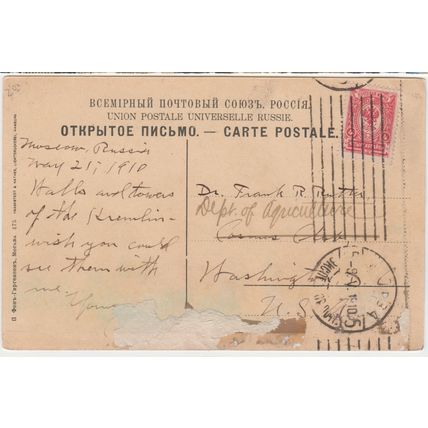 ВСЕМІРНЫЙ ПОЧТОВЫЙ СОЮЗЪ. РОССІЯ.
UNION POSTALE UNIVERSELLE RUSSIE.
ОТКРЫТОЕ ПИСЬМО. — CARTE POSTALE.
Moscow, Russia
May 21, 1910
Walls and towers
of the Kremlin -
wish you could
see them with
me.
Dr. Frank R. Rutter
Dept. of Agriculture
Cosmos Club
Washington
U.S.